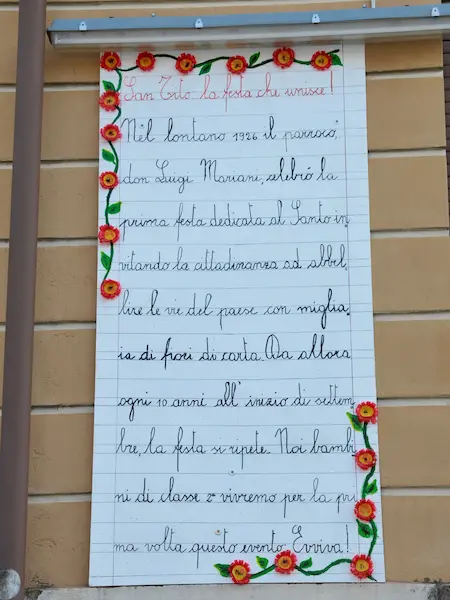 San Tito la festa che unisce!
Nel lontano 1926 il parroco,
don Luigi Mariani, celebrò la
prima festa dedicata al Santo in
vitando la cittadinanza ad abbel,
lire le vie del paese con miglia,
ia di fiori di carta. Da allora
ogni 10 anni all' inizio di settem
bre, la festa si ripete. Noi bambi
ni di classe 2ª vivremo per la pri
ma volta questo evento. Evviva!